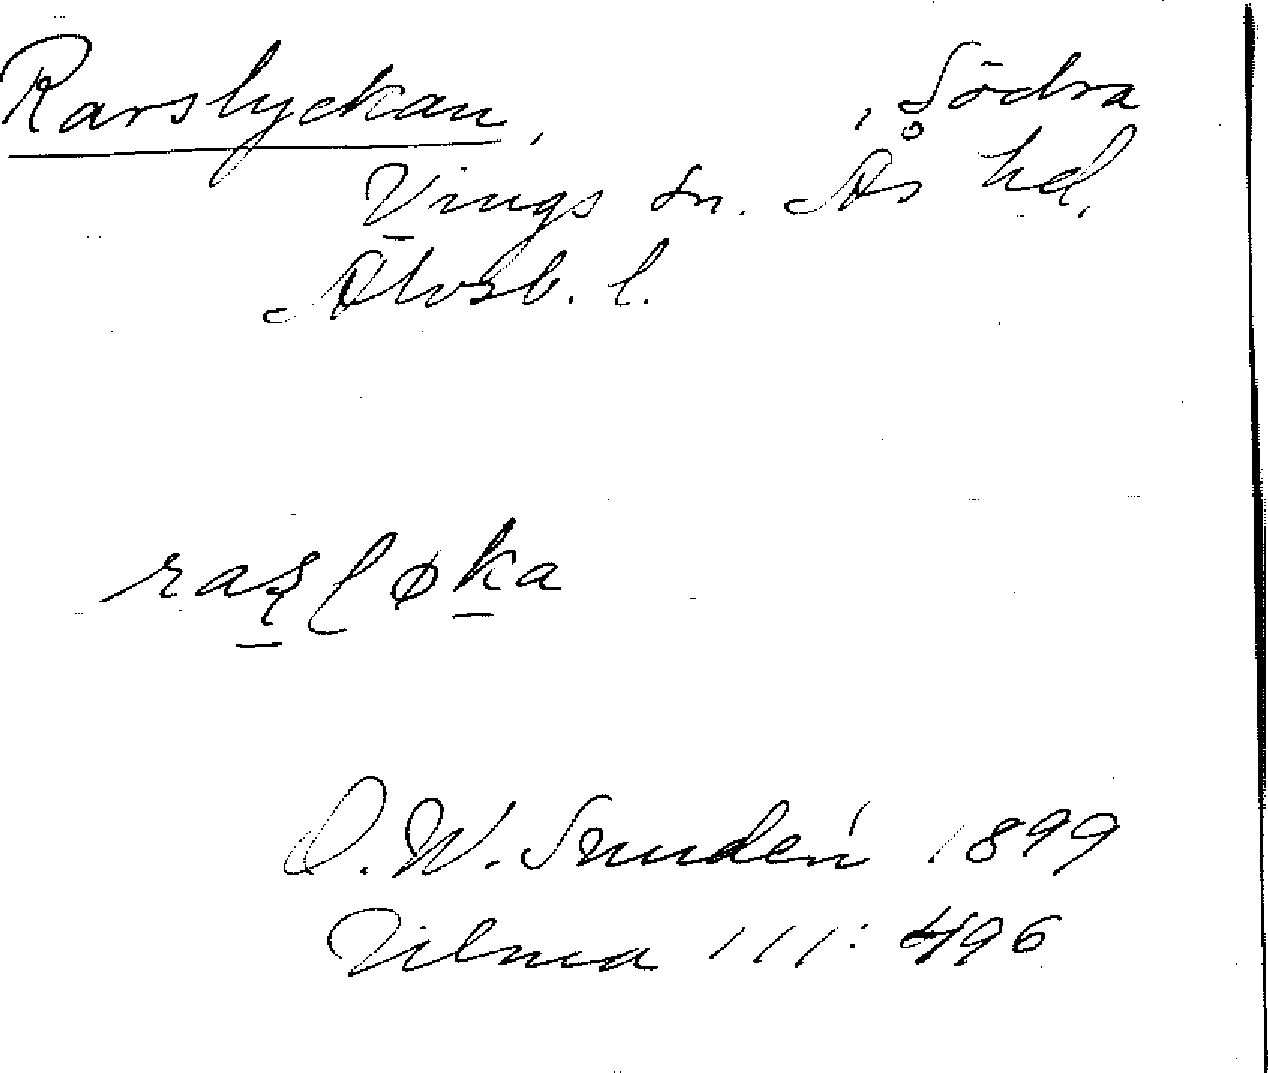 Rarslyckan,
Vings sn. Södra Ås hd,
Älvsb. l.
O. W. 1899
Vilma III: 496